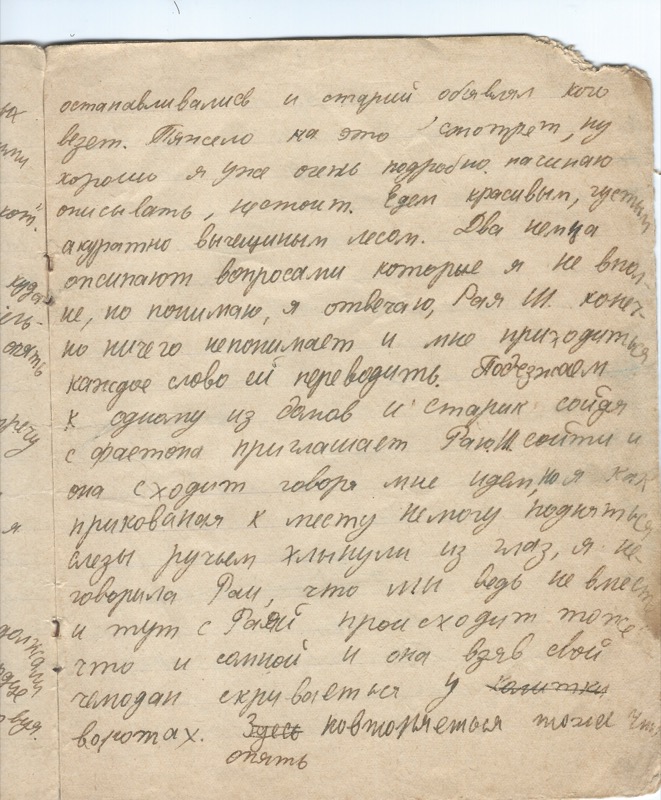 останавливались и старий обявлял кого
везет. Тяжело на это смотрет, ну
хорошо я уже очень подробно начинаю
описывать, нестоит. Едем красивым, густым
акуратно вычещиным лесом. Два немца
опсипают вопросами которые я не впол-
не, но понимаю, я отвечаю, Рая Ш. конеч-
но ничего непонимает и мне приходиться
каждое слово ей переводить. Подъезжаем
к одному из домов и старик сойдя
с фаетона приглашает Раю Ш. сойти и
она сходит говоря мне идем, но я как
прикованая к месту немогу подняться
слезы ручьем хлынули из глаз, я не-
говорила Раи, что ми ведь не вместе
и тут с Раей происходит тоже
что и самной и она взяв свой
чемодан скриваеться у калитки
воротах. Здесь повторяеться тоже что
опять
ых
кот".
куда
ель-
опять
тречу
я